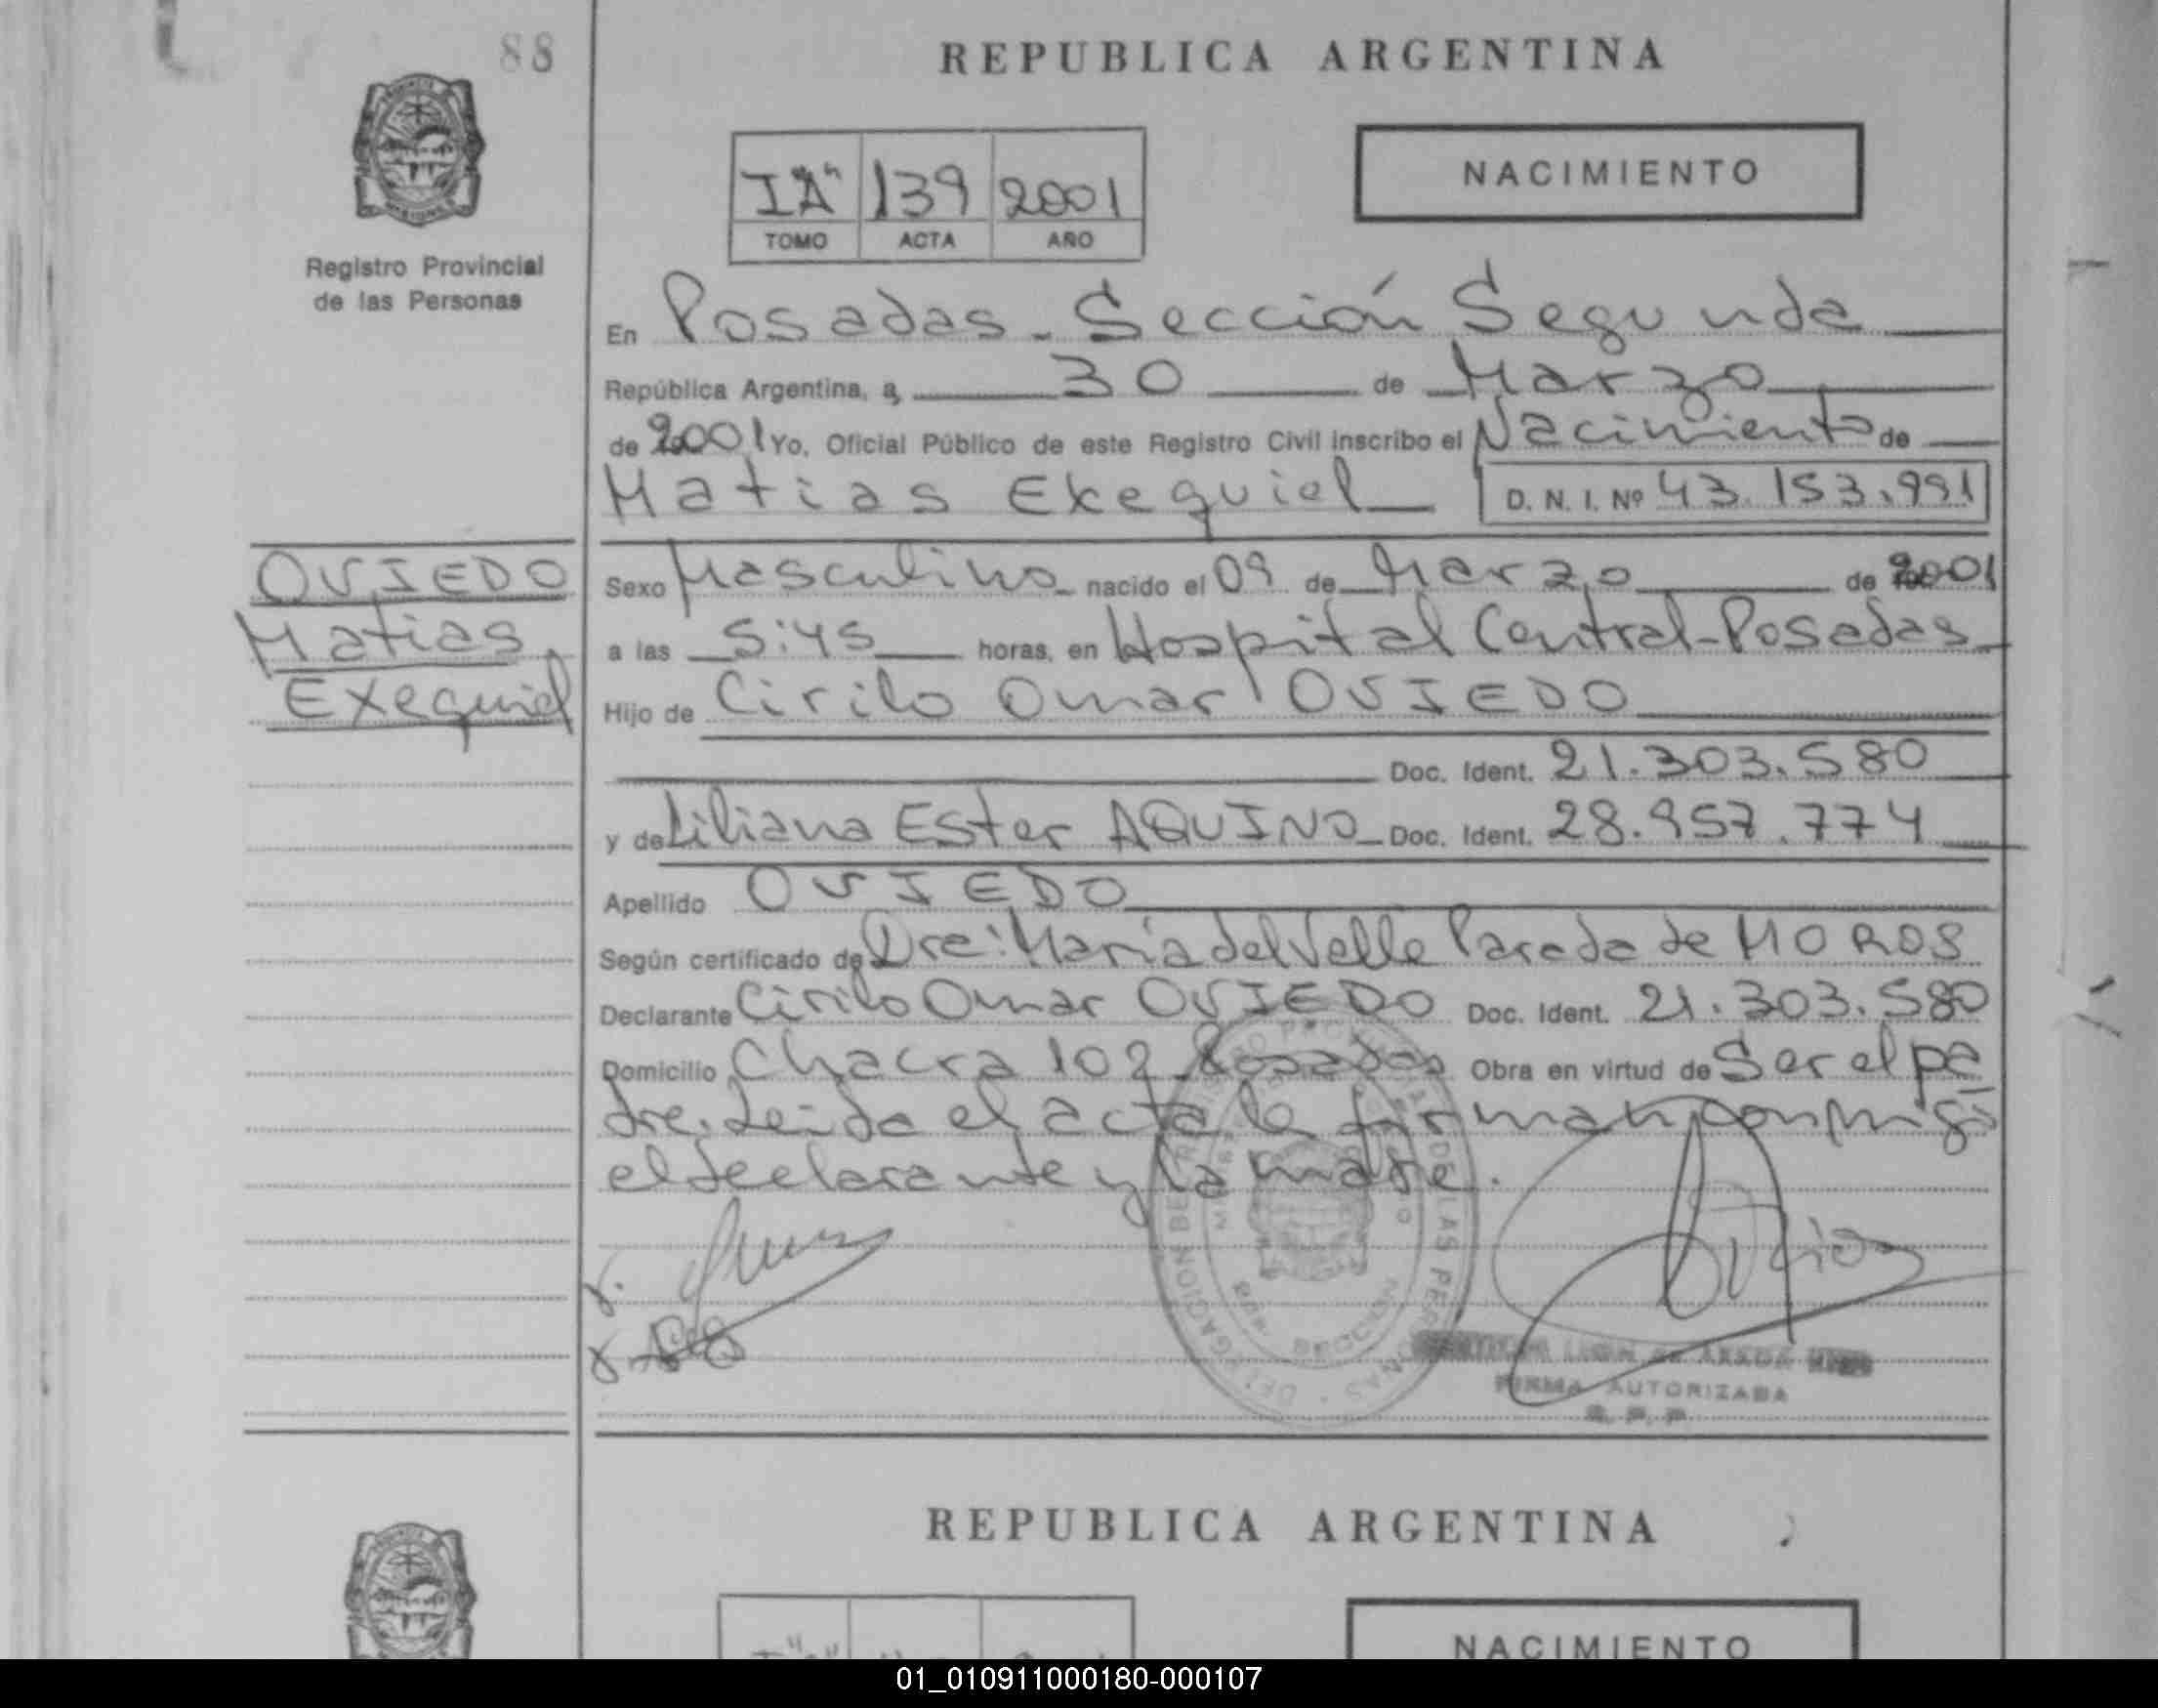 88
REPUBLICA ARGENTINA
I"A" 139 2001
TOMO ACTA AÑO
NACIMIENTO
Registro Provincial
de las Personas
En Posadas - Sección Segunda
República Argentina, a 30 de Marzo
de 2001 Yo, Oficial Público de este Registro Civil inscribo el Nacimiento de
Matias Exequiel D. N. I. Nº 43.153.991
OVIEDO
Matias
Exequiel
Sexo Masculino nacido el 09 de Marzo de 2001
a las 5:45 horas, en Hospital Central-Posadas
Hijo de Cirilo Omar OVIEDO
Doc. Ident. 21.303.580
y de Liliana Ester AQUINO Doc. Ident. 28.957.774
Apellido OVIEDO
Según certificado de Dra: María del Valle Parada de MOROS
Declarante Cirilo Omar OVIEDO Doc. Ident. 21.303.580
Domicilio Chacra 102 Posadas Obra en virtud de Ser el pa
dre. Leida el acta la firman conmigo
el declarante y la madre.
FIRMA AUTORIZADA
R. P. P.
REPUBLICA ARGENTINA
NACIMIENTO
01_010911000180-000107